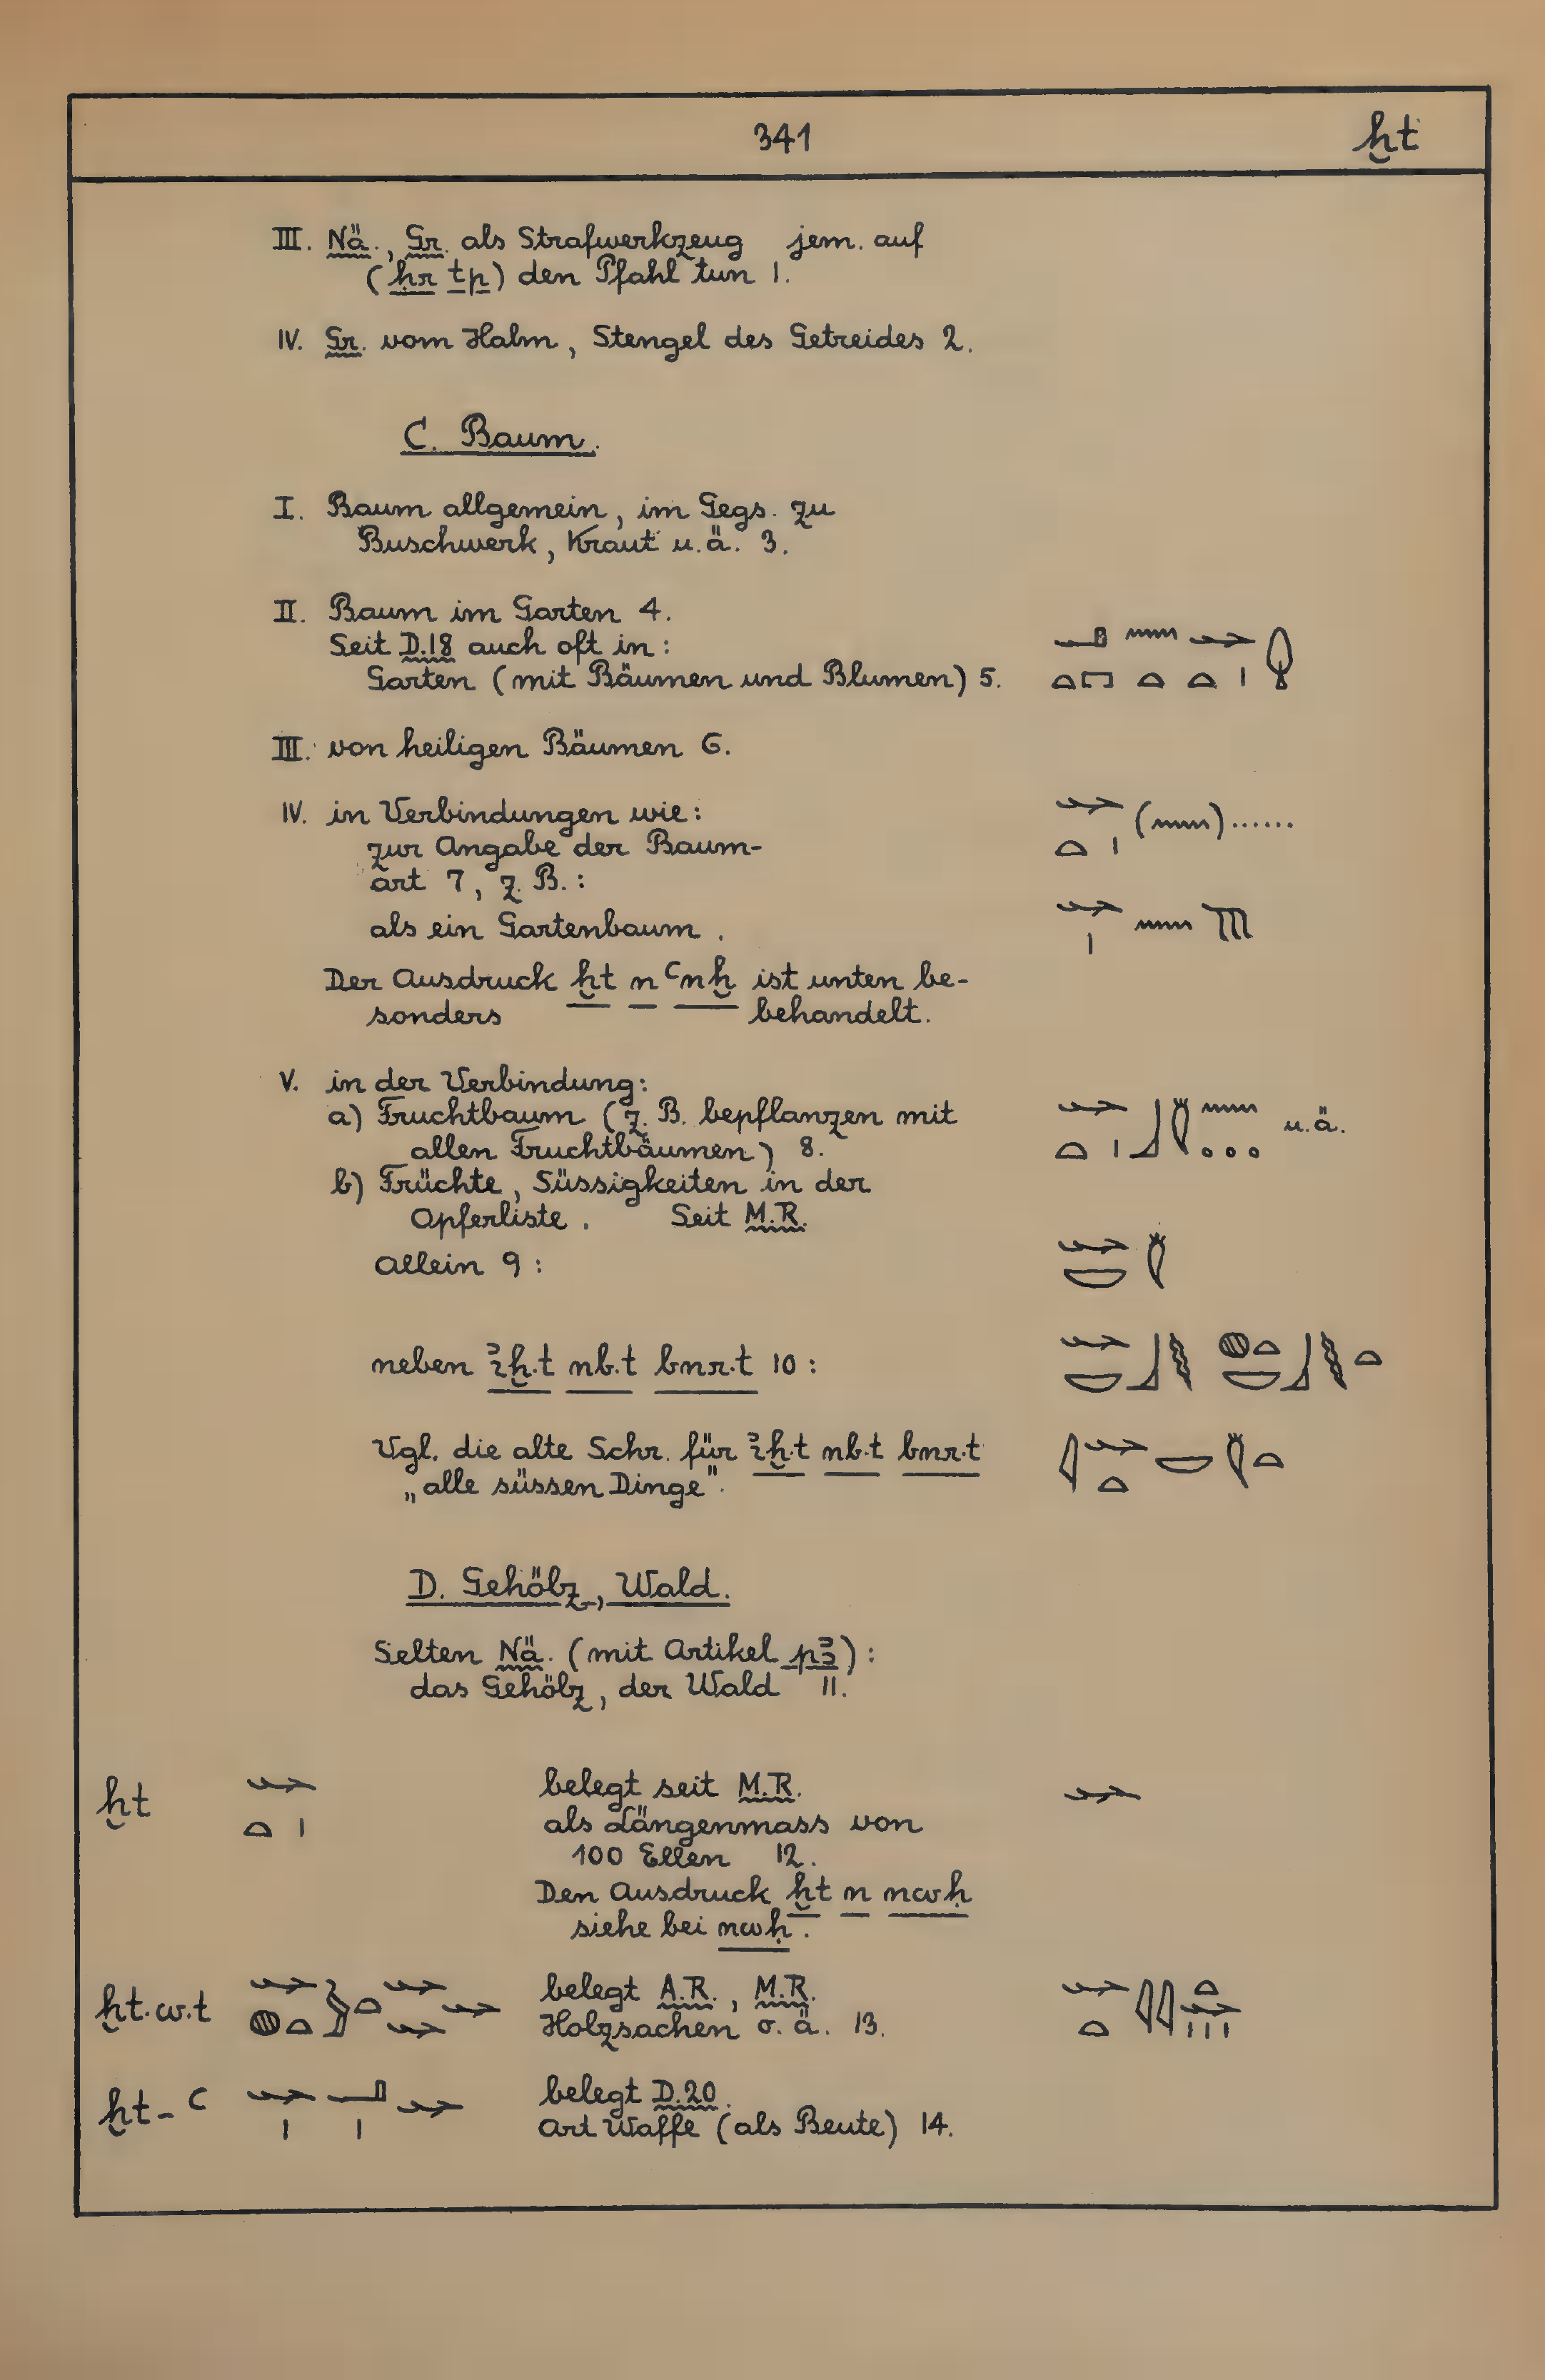 341 ḫt
III. Nä., Gr. als Strafwerkzeug jem. auf
(ḥr tp) den Pfahl tun 1.
IV. Gr. vom Halm, Stengel des Getreides 2.
C. Baum.
I. Baum allgemein, im Gegs. zu
Buschwerk, Kraut u.ä. 3.
II. Baum im Garten 4.
Seit D.18 auch oft in: 𓂝𓈖𓆱
Garten (mit Bäumen und Blumen) 5.
III. von heiligen Bäumen 6.
IV. in Verbindungen wie: 𓆱𓏏𓏤(𓈖)......
zur Angabe der Baum-
art 7, z. B.:
als ein Gartenbaum. 𓆱𓏤𓈖
Der Ausdruck ḫt n ꜥnḫ ist unten be-
sonders behandelt.
V. in der Verbindung:
a) Fruchtbaum (z. B. bepflanzen mit 𓆱𓏏𓏤𓃀𓇛𓈖 u.ä.
allen Fruchtbäumen) 8.
b) Früchte, Süssigkeiten in der
Opferliste. Seit M.R.
Allein 9: 𓆱𓎟𓇛
neben iḫ.t nb.t bnr.t 10:
Vgl. die alte Schr. für iḫ.t nb.t bnr.t 𓇋𓆱𓏏𓎟𓇛𓏏
„alle süssen Dinge".
D. Gehölz, Wald.
Selten Nä. (mit Artikel pꜣ):
das Gehölz, der Wald 11.
ḫt 𓆱𓏏𓏤 belegt seit M.R. 𓆱
als Längenmass von
100 Ellen 12.
Den Ausdruck ḫt n nwḥ
siehe bei nwḥ.
ḫt.w.t belegt A.R., M.R. 𓆱𓏏𓇋𓇋𓏏𓆱𓏥
Holzsachen o. ä. 13.
ḫt-ꜥ 𓆱𓏤𓂝𓏤𓆱 belegt D.20.
Art Waffe (als Beute) 14.